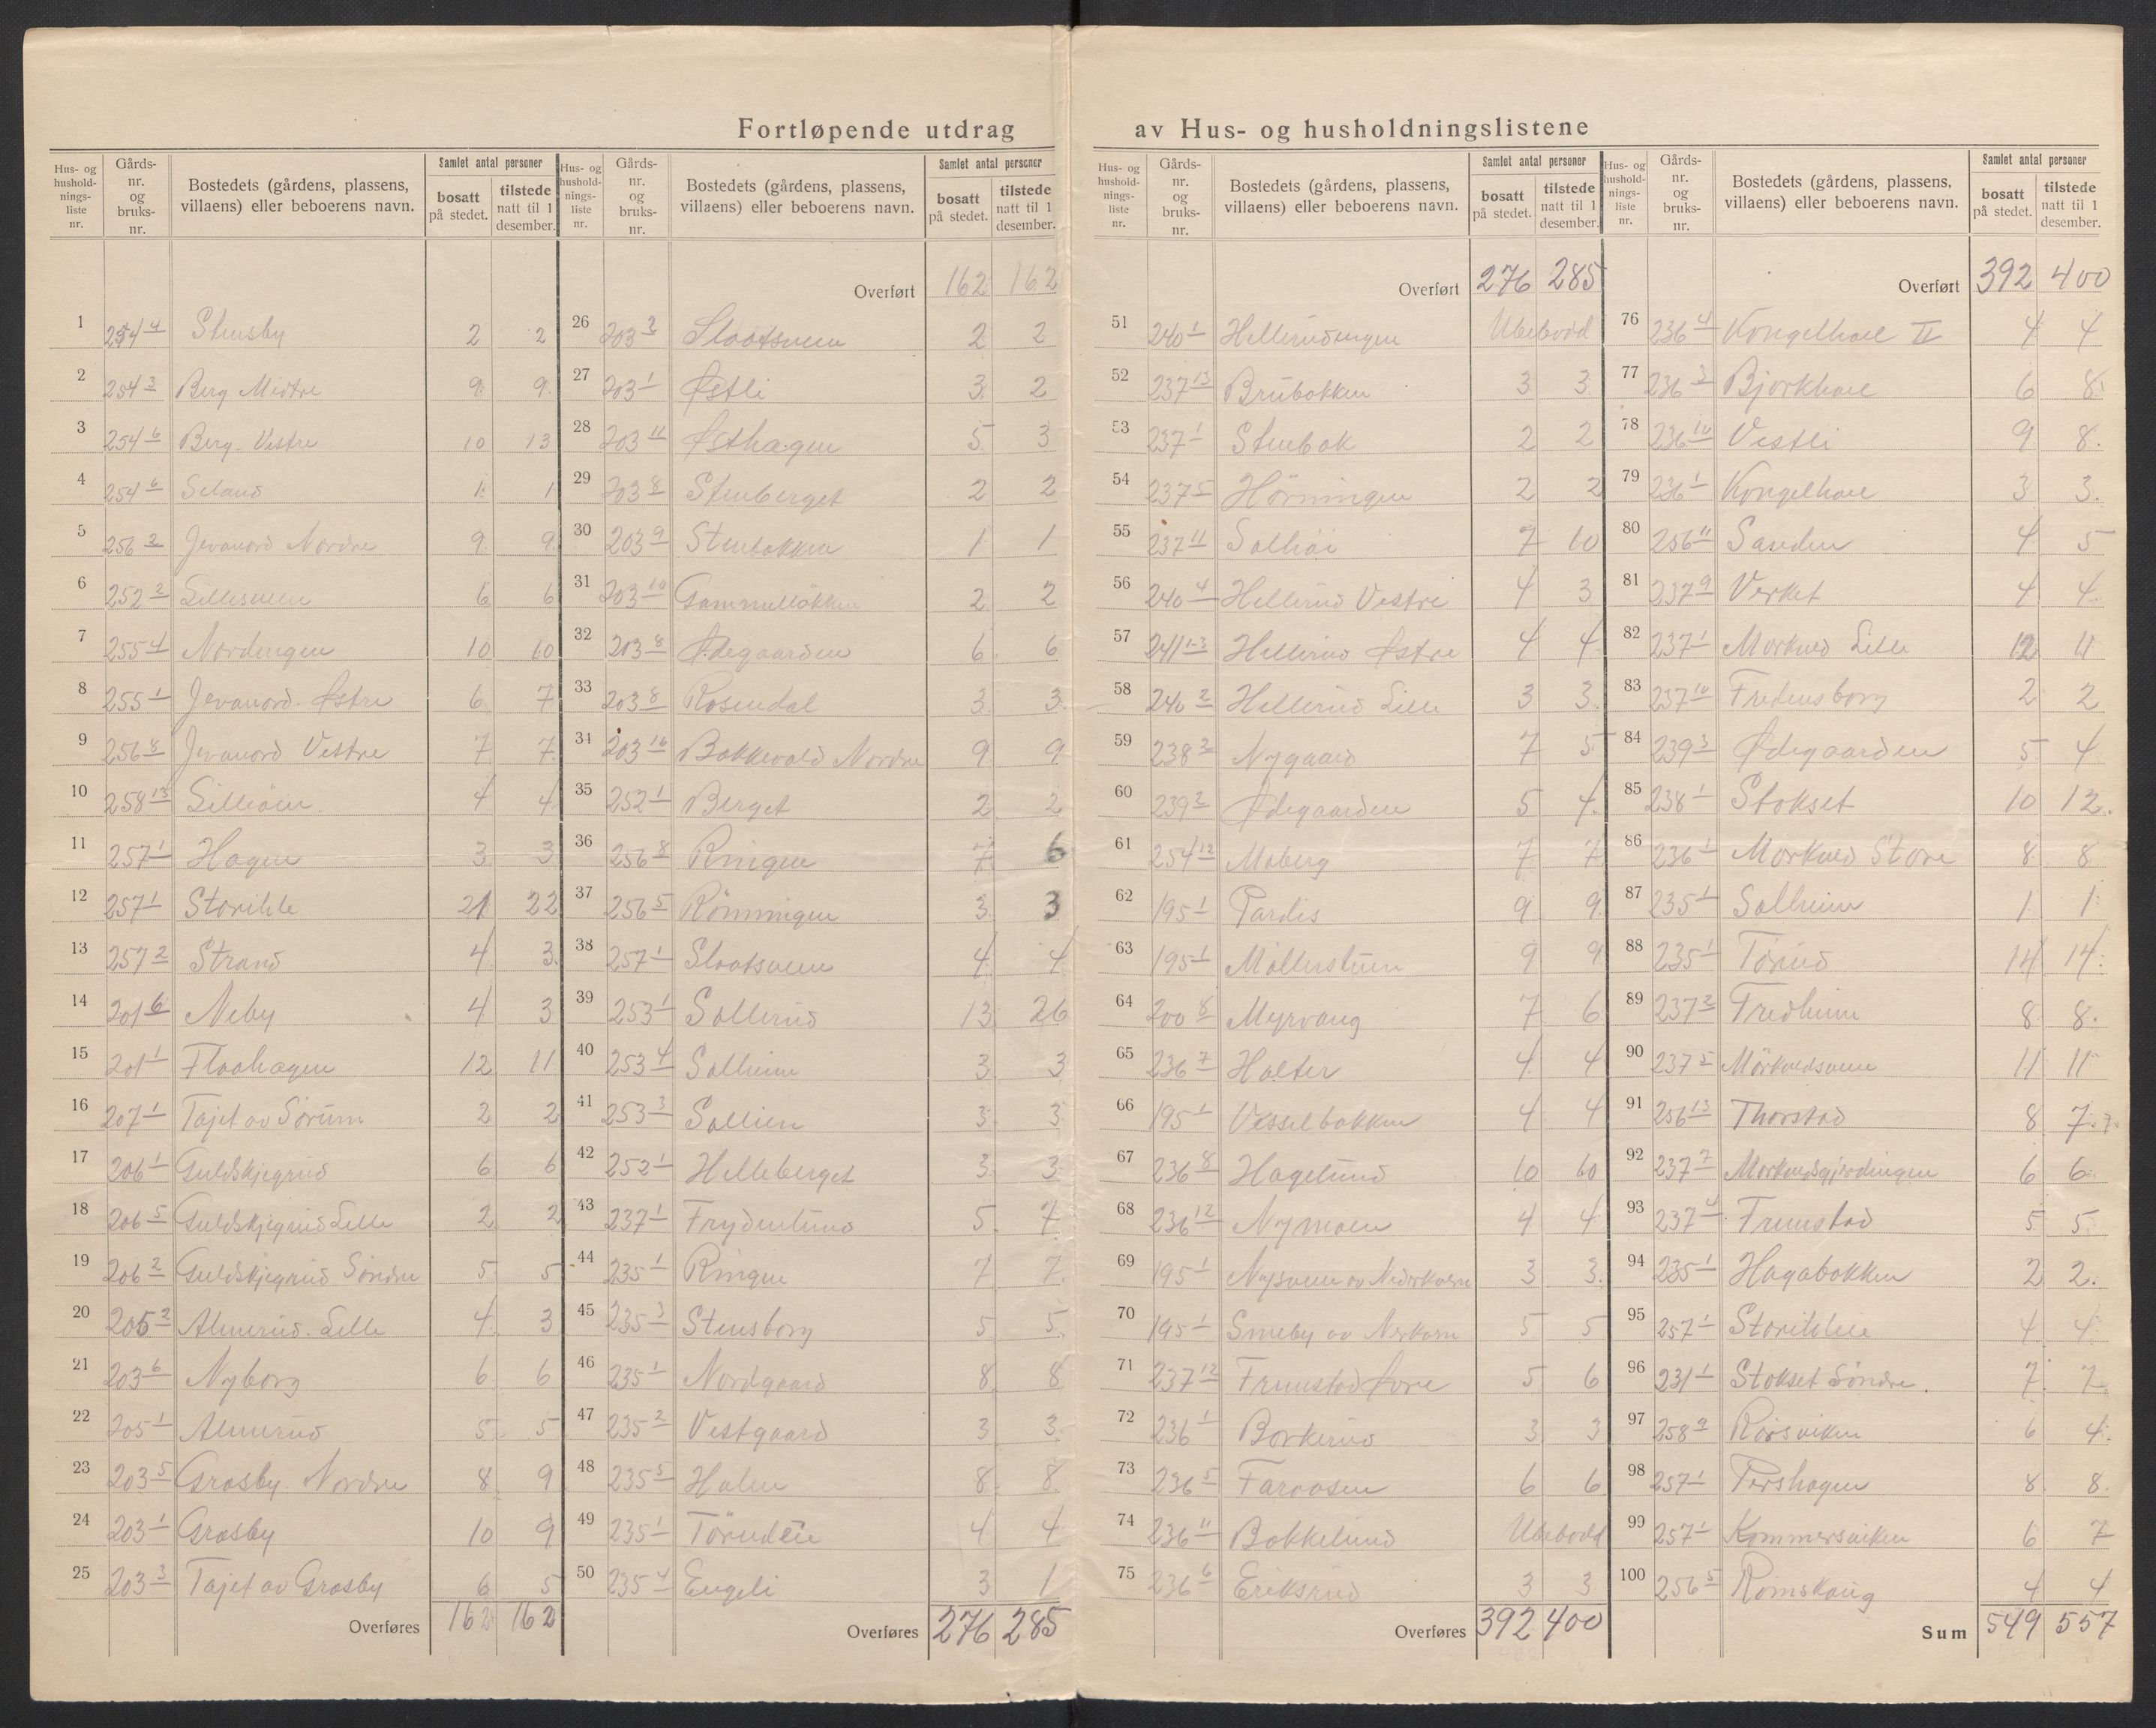 Fortløpende utdrag av Hus- og husholdningslistene
Hus- og hushold-nings-liste nr. | Gårds-nr. og bruks-nr. | Bostedets (gårdens, plassens, villaens) eller beboerens navn. | Samlet antal personer bosatt på stedet. | tilstede natt til 1 desember.
1 254 4 Stensby 2 2
2 254 3 Berg Midtre 9 9
3 254 6 Berg Vestre 10 13
4 254 6 Seland 1 1
5 256 2 Jevanord Nordre 9 9
6 252 2 6 6
7 255 4 Nordengen 10 10
8 255 1 Jevanord Østre 6 7
9 256 8 Jevanord Vestre 7 7
10 258 13 4 4
11 257 1 Hagen 3 3
12 257 1 21 22
13 257 2 Strand 4 3
14 201 6 Neby 4 3
15 201 1 Flaahagen 12 11
16 207 1 Tajet av Sørum 2 2
17 206 1 Guldskjegrud 6 6
18 206 5 Guldskjegrud Lille 2 2
19 206 2 Guldskjegrud Søndre 5 5
20 205 2 Almerud Lille 4 3
21 203 6 Nyborg 6 6
22 205 1 Almerud 5 5
23 203 5 Grasby Nordre 8 9
24 203 1 Grasby 10 9
25 203 3 Tajet av Grasby 6 5
Overføres 162 162
Hus- og hushold-nings-liste nr. | Gårds-nr. og bruks-nr. | Bostedets (gårdens, plassens, villaens) eller beboerens navn. | Samlet antal personer bosatt på stedet. | tilstede natt til 1 desember.
Overført 162 162
26 203 2 Slaatsveen 2 2
27 203 1 Østli 3 2
28 203 11 Østhagen 5 3
29 203 8 Stenberget 2 2
30 203 9 Stenbakken 1 1
31 203 10 2 2
32 203 8 Ødegaarden 6 6
33 203 8 Rosendal 3 3
34 203 16 Bakkevold Nordre 9 9
35 252 1 Berget 2 2
36 256 8 Ringen 7 6
37 256 5 Rønningen 3 3
38 257 1 Slaatsveen 4 4
39 253 1 Sollerud 13 26
40 253 4 Solheim 3 3
41 253 3 Sollien 3 3
42 252 1 Helleberget 3 3
43 237 1 Frydenlund 5 7
44 235 1 Ringen 7 7
45 235 3 Stensborg 5 5
46 235 1 Nordgaard 8 8
47 235 2 Vestgaard 3 3
48 235 5 8 8
49 235 1 Tørudeie 4 4
50 235 4 Engeli 3 1
Overføres 276 285
Hus- og hushold-nings-liste nr. | Gårds-nr. og bruks-nr. | Bostedets (gårdens, plassens, villaens) eller beboerens navn. | Samlet antal personer bosatt på stedet. | tilstede natt til 1 desember.
Overført 276 285
51 240 1 Hellerudengen Ubebodd
52 237 13 Brubakken 3 3
53 237 1 Stenbak 2 2
54 237 5 Hørningen 2 2
55 237 11 Solhøi 7 10
56 240 4 Hellerud Vestre 4 3
57 241 1-3 Hellerud Østre 4 4
58 240 2 Hellerud Lille 3 3
59 238 3 Nygaard 7 5
60 239 2 Ødegaarden 5 4
61 254 12 Moberg 7 7
62 195 1 Pardis 9 9
63 195 1 9 9
64 200 8 Myrvang 7 6
65 236 7 Holter 4 4
66 195 1 Vesselbakken 4 4
67 236 8 Hagelund 10 10
68 236 12 Nymoen 4 4
69 195 1 3 3
70 195 1 Smeby av 5 5
71 237 12 Frenstad Øvre 5 6
72 236 1 Borkerud 3 3
73 236 5 Faraasen 6 6
74 236 11 Bakkelund Ubebodd
75 236 6 Eriksrud 3 3
Overføres 392 400
Hus- og hushold-nings-liste nr. | Gårds-nr. og bruks-nr. | Bostedets (gårdens, plassens, villaens) eller beboerens navn. | Samlet antal personer bosatt på stedet. | tilstede natt til 1 desember.
Overført 392 400
76 236 4 Kongelhael II 4 4
77 236 3 Bjørkhael 6 8
78 236 10 Vestli 9 8
79 236 1 Kongelhael 3 3
80 256 11 Sanden 4 5
81 237 9 Verket 4 4
82 237 1 Morkved Lille 12 11
83 237 10 Fredensborg 2 2
84 239 3 Ødegaarden 5 4
85 238 1 Stokset 10 12
86 236 1 Morkved Store 8 8
87 235 1 Solheim 1 1
88 235 1 Tørud 14 14
89 237 2 Fredheim 8 8
90 237 5 Mørkvedsveen 11 11
91 256 13 Thorstad 8 7
92 237 7 Morkvedsgjerdingen 6 6
93 237 4 Frenstad 5 5
94 235 1 Hagabakken 2 2
95 257 1 4 4
96 231 1 Stokset Søndre 7 7
97 258 9 Rørsviken 6 4
98 257 1 Pershagen 8 8
99 257 1 Kommersviken 6 7
100 256 5 Romskaug 4 4
Sum 549 557